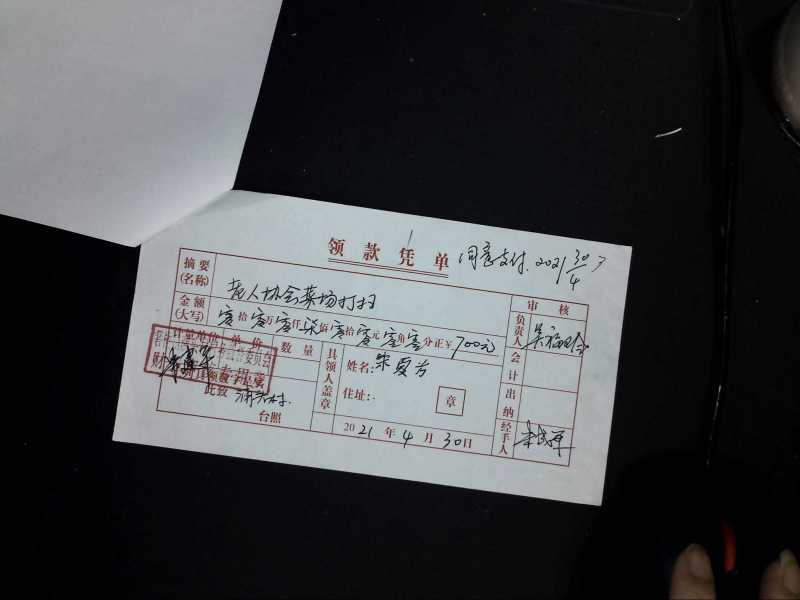 领款凭单 同意支付. 2021 30/4
摘要(名称) 老人协会菜场打扫
审核
金额(大写) 零拾零万零仟柒佰零拾零元零角零分正¥700元
负责人
计量单位 单价 数量
具领人盖章
姓名: 朱夏芳
会计
专用章
住址:
章
出纳
此致 浦头村
台照
2021年4月30日
经手人